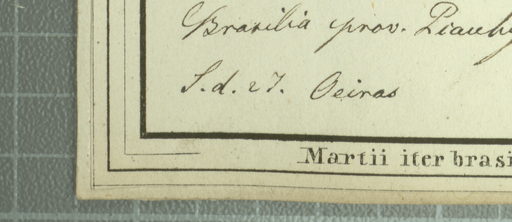 Brasilia prov. Piauhy
S. d. 27. Oeiras
Martii iter brasi